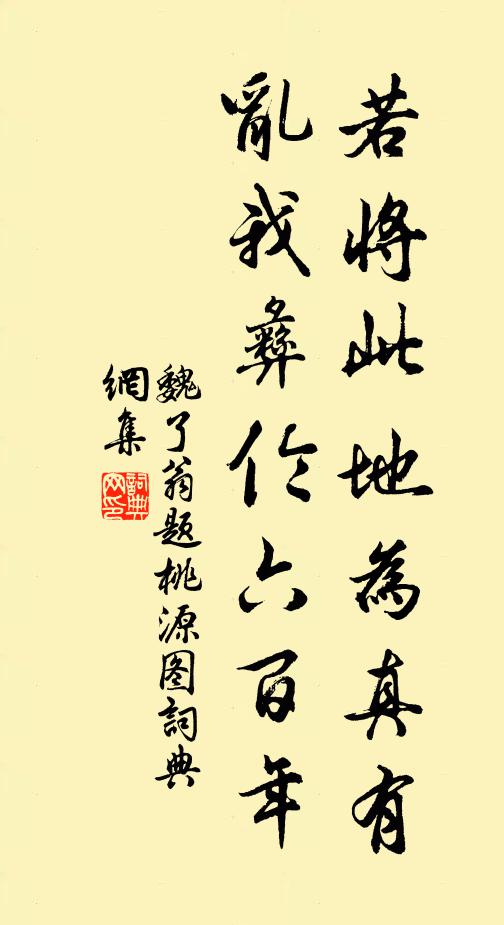 若將此地為真有
亂我彝伦六百年
魏了翁题桃源图詞典
網集
詞典
网印